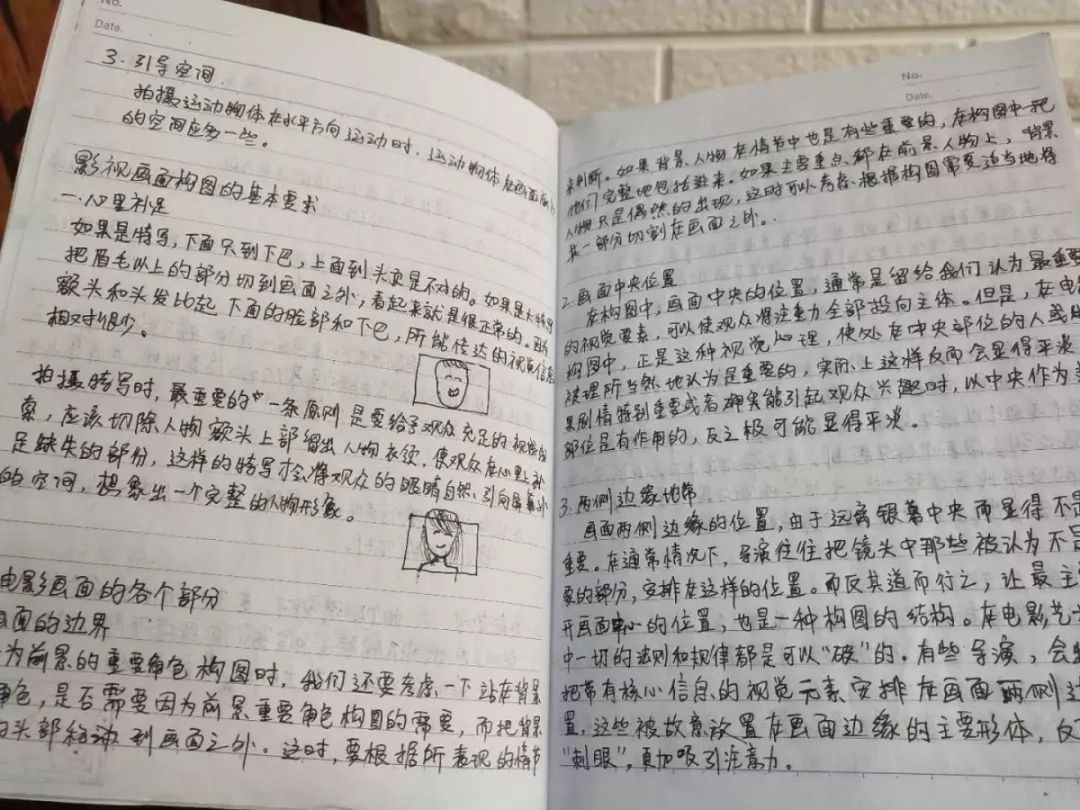 No.
Date.
3.引导空间.
拍摄运动物体在水平方向运动时,运动物体在画面前方
的空间应多一些。
影视画面构图的基本要求
一.心里补足
如果是特写,下面只到下巴,上面到头顶是不对的。如果是大特写
把眉毛以上的部分切到画面之外,看起来就是很正常的。因为
额头和头发比起下面的脸部和下巴,所能传达的视觉信息
相对很少。
拍摄特写时,最重要的一条原则是要给予观众充足的视觉线
索,应该切除人物额头上部留出人物衣领,使观众在心里上补
足缺失的部份,这样的特写才会将观众的眼睛自然引向屏幕外
的空间,想象出一个完整的人物形象。
电影画面的各个部分
画面的边界
为前景的重要角色构图时,我们还要考虑一下站在背景
角色,是否需要因为前景重要角色构图的需要,而把背景
的头部移动到画面之外。这时,要根据所表现的情节
No.
Date.
来判断。如果背景人物在情节中也是有些重要的,在构图中一把
他们完整地包括进来。如果主要重点都在前景人物上,背景
人物只是偶然的出现,这时可以考虑根据构图需要适当地将
其一部分切割在画面之外。
2.画面中央位置
在构图中,画面中央的位置,通常是留给我们认为最重要
的视觉要素,可以使观众将注意力全部投向主体。但是,在电
构图中,正是这种视觉心理,使处在中央部位的人或
被理所当然地认为是重要的,实际上这样反而会显得平淡
果剧情特别重要或者确实能引起观众兴趣时,以中央作为
部位是有作用的,反之极可能显得平淡。
3.两侧边缘地带
画面两侧边缘的位置,由于远离银幕中央而显得不是
重要。在通常情况下,导演往往把镜头中那些被认为不是
要的部分,安排在这样的位置。而反其道而行之,让最主
开画面中心的位置,也是一种构图的结构。在电影艺
中一切的法则和规律都是可以“破”的。有些导演,会
把带有核心信息的视觉元素安排在画面两侧边
置,这些被故意放置在画面边缘的主要形体,反
“刺眼”,更加吸引注意力。